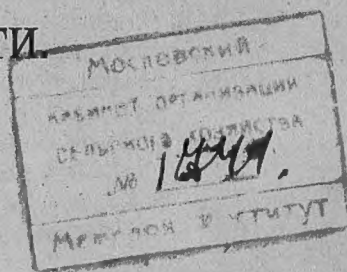 ТИ.
МОСКОВСКИЙ
КАБИНЕТ ОРГАНИЗАЦИИ
СЕЛЬСКОГО ХОЗЯЙСТВА
№
МЕЖЕВОЙ